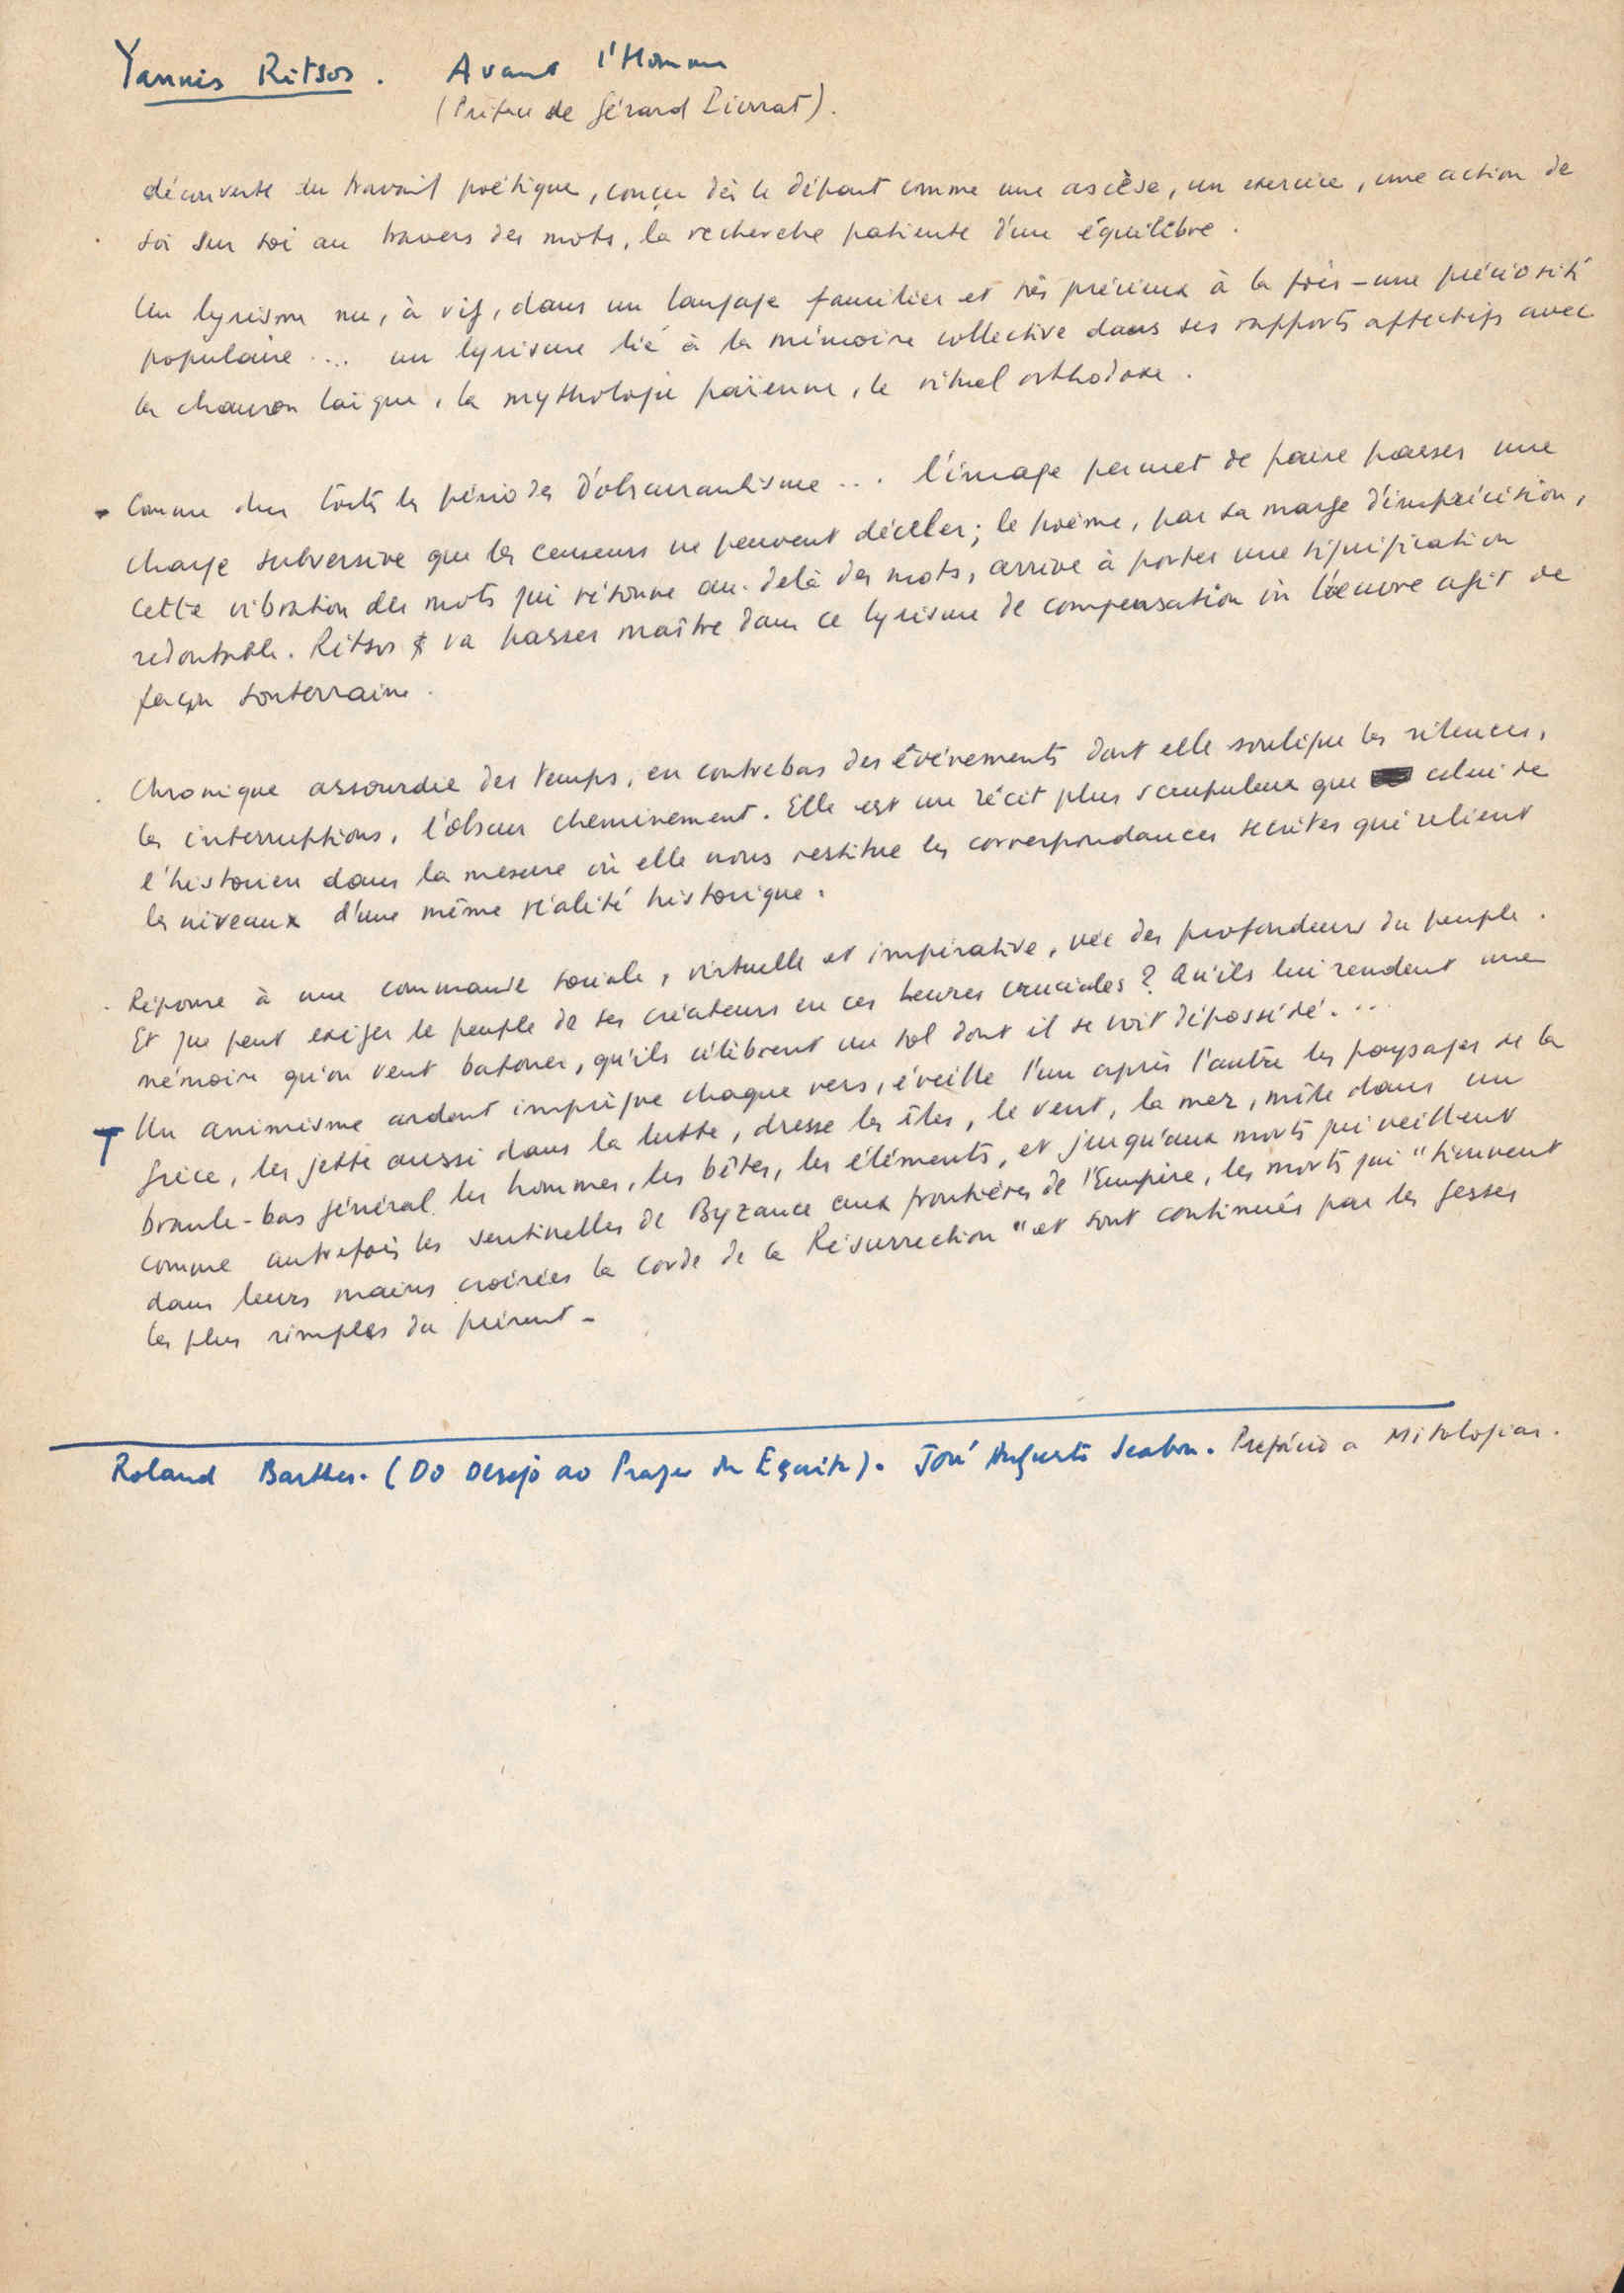 Yannis Ritsos. Avant l'Homme
(Préface de Gérard Pierrat).
découverte du travail poétique, conçu dès le départ comme une ascèse, un exercice, une action de
soi sur soi au travers des mots, la recherche patiente d'un équilibre.
Un lyrisme nu, à vif, dans un langage familier et très précieux à la fois - une préciosité
populaire ... un lyrisme lié à la mémoire collective dans ses rapports affectifs avec
la chanson laïque, la mythologie païenne, le rituel orthodoxe.
- Comme dans toutes les périodes d'obscurantisme ... l'image permet de faire passer une
charge subversive que les censeurs ne peuvent déceler; le poème, par sa marge d'imprécision,
cette vibration des mots qui résonne au-delà des mots, arrive à porter une signification
redoutable. Ritsos va passer maître dans ce lyrisme de compensation où l'oeuvre agit de
façon souterraine.
. Chronique assourdie des temps, en contrebas des événements dont elle souligne les silences,
les interruptions, l'obscur cheminement. Elle est un récit plus scrupuleux que celui de
l'historien dans la mesure où elle nous restitue les correspondances secrètes qui relient
les niveaux d'une même réalité historique.
. Réponse à une commande sociale, virtuelle et impérative, née des profondeurs du peuple.
Et que peut exiger le peuple de ses créateurs en ces heures cruciales? Qu'ils lui rendent une
mémoire qu'on veut bafouer, qu'ils célèbrent un sol dont il se voit dépossédé...
T Un animisme ardent imprègne chaque vers, éveille l'un après l'autre les paysages de la
Grèce, les jette aussi dans la lutte, dresse les îles, le vent, la mer, mêle dans un
branle-bas général les hommes, les bêtes, les éléments, et jusqu'aux morts qui veillent
comme autrefois les sentinelles de Byzance aux frontières de l'Empire, les morts qui "tiennent
dans leurs mains croisées la corde de la Résurrection" et sont continués par les gestes
les plus simples du présent -
Roland Barthes. (Do Desejo ao Prazer da Escrita). José Augusto Seabra. Prefácio a Mitologias.